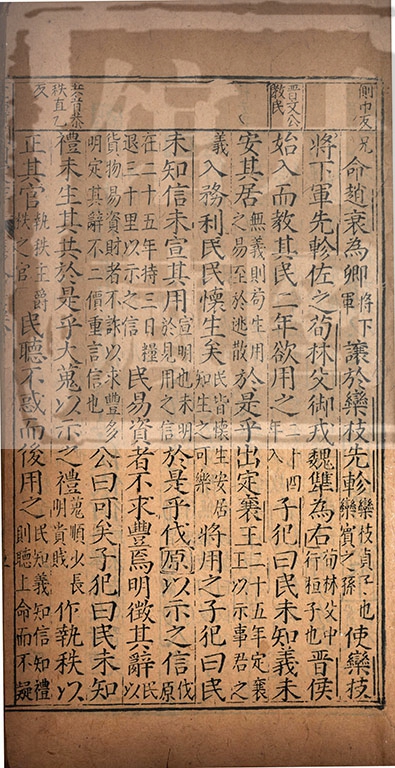 側巾反
命趙衰為卿將下軍讓於欒枝先軫欒枝貞子也欒賓之孫使欒枝
將下軍先軫佐之荀林父御戎魏犨為右荀林父中行桓子也晉侯
晉文公教民
始入而教其民二年欲用之二十四年入子犯曰民未知義未
安其居無義則苟生用之易至逃散於是乎出定襄王二十五年定襄王以示事君之
義入務利民民懷生矣民皆懷生安居知生之可樂將用之子犯曰民
未知信未宣其用宣明也未明於見用之信於是乎伐原以示之信伐原
在二十五年持三日糧退三十里以示之信民易資者不求豐焉明徵其辭民以
貨物易資財者不詐以求豐多明定其辭不二價重言信也公曰可矣子犯曰民未知
共音恭
秩直乙反
禮未生其共於是乎大蒐以示之禮蒐順少長明貴賤作執秩以
正其官執秩主爵秩之官民聽不惑而後用之民知義知信知禮則聽上命而不疑